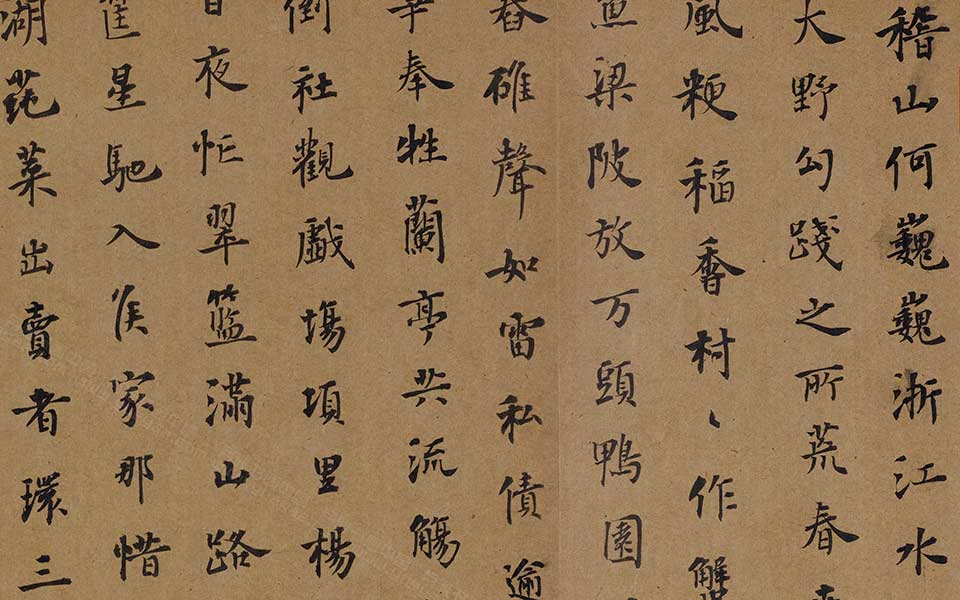 稽山何巍巍浙江水
大野勾踐之所荒春
風粳稻香村〻作蟹
魚梁陂放万頭鴨園
舂碓聲如雷私債逾
幸奉牲蘭亭共流觴
倒社觀戲場項里楊
夜忙翠籃滿山路
筐星馳入侯家那惜
湖蒓菜出賣者環三